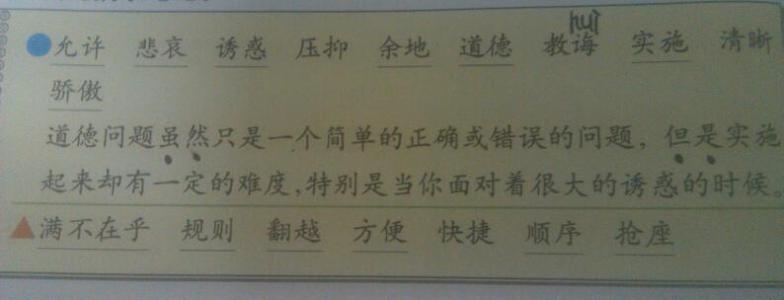 huì
允许 悲哀 诱惑 压抑 余地 道德 教诲 实施 清晰
骄傲
道德问题虽然只是一个简单的正确或错误的问题，但是实施
起来却有一定的难度，特别是当你面对着很大的诱惑的时候。
满不在乎 规则 翻越 方便 快捷 顺序 抢座